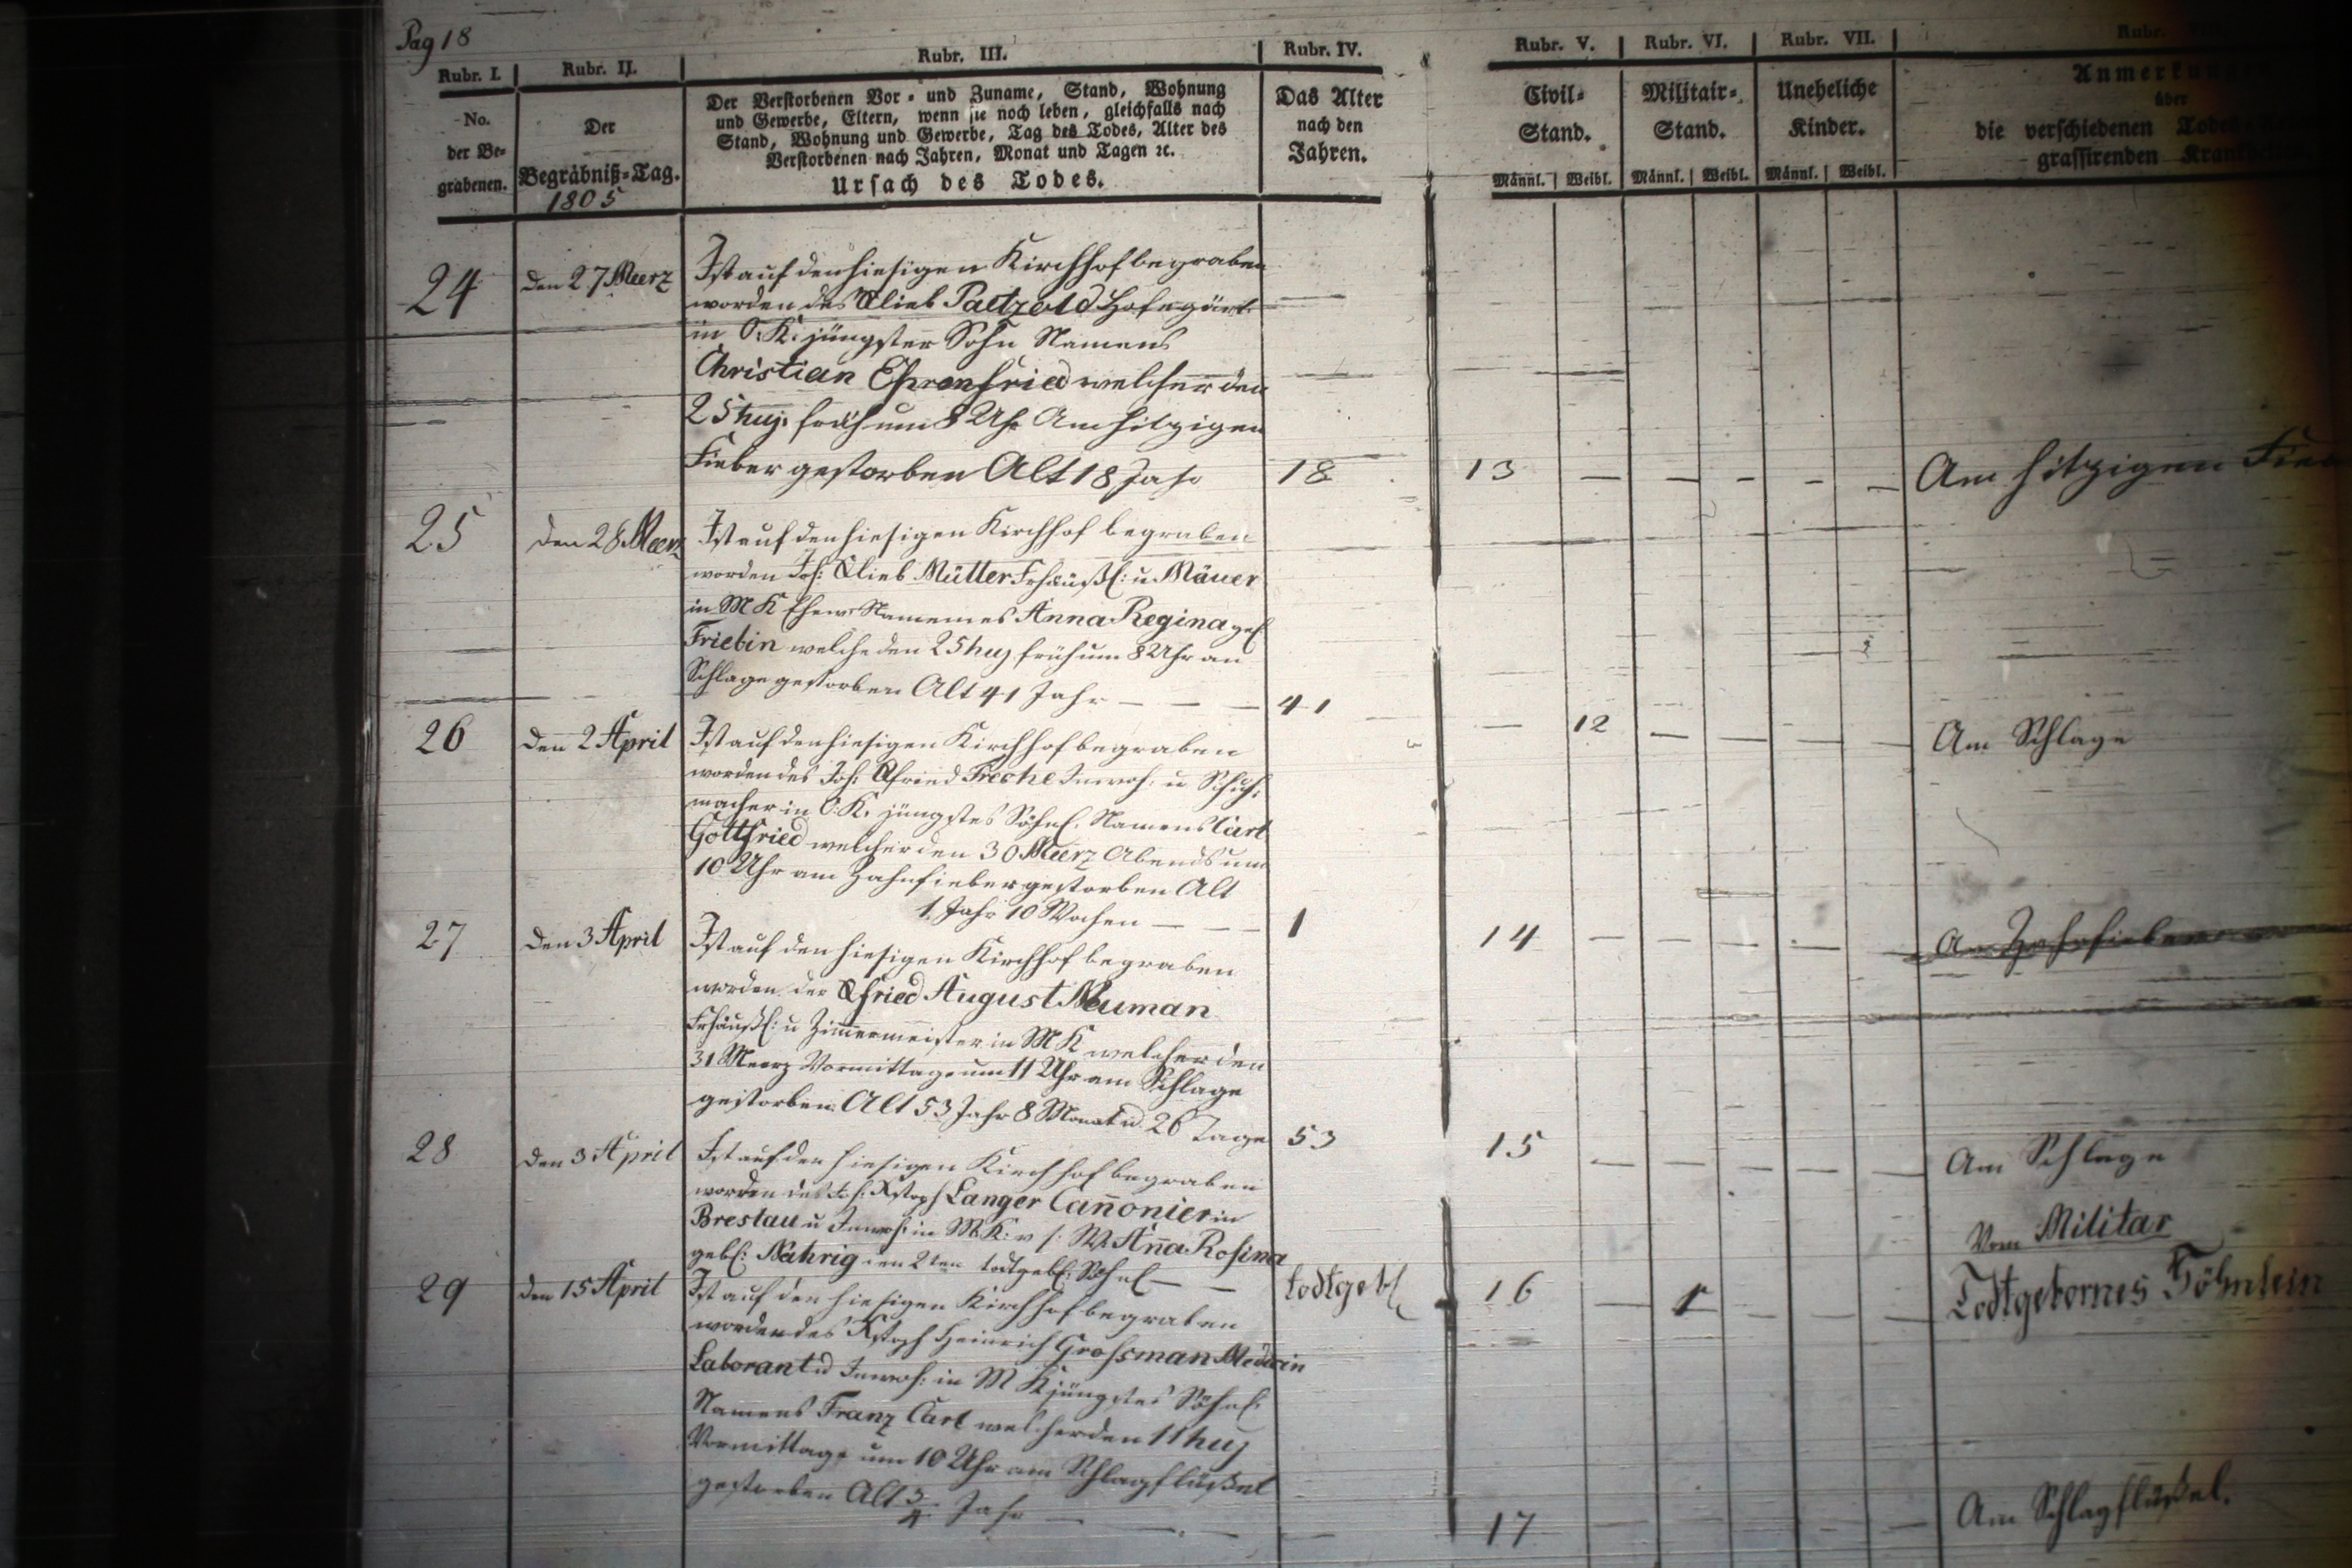 Pag 18
Rubr. I. Rubr. II. Rubr. III. Rubr. IV. Rubr. V. Rubr. VI. Rubr. VII. Rubr.
No.
der Be-
grabenen.
Der
Begräbniß-Tag.
1805
Der Verstorbenen Vor- und Zuname, Stand, Wohnung
und Gewerbe, Eltern, wenn sie noch leben, gleichfalls nach
Stand, Wohnung und Gewerbe, Tag des Todes, Alter des
Verstorbenen nach Jahren, Monat und Tagen ꝛc.
Ursach des Todes.
Das Alter
nach den
Jahren.
Civil-
Stand.
Männl. Weibl.
Militair-
Stand.
Männl. Weibl.
Uneheliche
Kinder.
Männl. Weibl.
Anmerkungen
über
die verschiedenen
grassirenden
24
den 27 Meerz
Ist auf den hiesigen Kirchhof begraben
worden des Glieb Paetzold Hofegärt:
in O. K. jüngster Sohn Namens
Christian Ehrenfried welcher den
25 huj. früh um 8 Uhr Am hitzigen
Fieber gestorben Alt 18 Jahr
18
13 — — — — —
Am hitzigen
25
den 28 Meerz
Ist auf den hiesigen Kirchhof begraben
worden Joh: Glieb Müller Frhäußl: u Mäuer
in M K Ehew: Namens Anna Regina geb
Friebin welche den 25 huj früh um 8 Uhr an
Schlage gestorben Alt 41 Jahr — — —
41
— 12 — — — —
Am Schlage
26
den 2 April
Ist auf den hiesigen Kirchhof begraben
worden des Joh: Gfried Freche Inwoh: u Schuh:
macher in O. K. jüngstes Söhnl. Namens Carl
Gottfried welcher den 30 Meerz Abends um
10 Uhr am Zahnfieber gestorben Alt
1. Jahr 10 Wochen — — —
1
14 — — — — —
Am Zahnfieber
27
den 3 April
Ist auf den hiesigen Kirchhof begraben
worden der Gfried August Neuman
Frhäußl: u Zimmermeister in M K welcher den
31 Meerz Vormittags um 11 Uhr am Schlage
gestorben. Alt 53 Jahr 8 Monat u 26 Tage
53
15 — — — — —
Am Schlage
28
den 3 April
Ist auf den hiesigen Kirchhof begraben
worden des Joh: Xstoph Langer Cannonier in
Breslau u Inwoh: in M. K: v s: W. Anna Rosina
gebl: Nahrig den 2ten todtgebl: Söhnl — —
todtgebl
16 — 1 — — —
Vom Militar
Todtgebornes Söhnlein
29
den 15 April
Ist auf den hiesigen Kirchhof begraben
worden des Xstoph Heinrich Grossman Medicin
Laborant u Inwoh: in M K jüngstes Söhnl.
Namens Franz Carl welcher den 11 huj
Vormittags um 10 Uhr am Schlagflüßel
gestorben Alt 3/4 Jahr — — — —
17 — — — — —
Am Schlagflüßel.